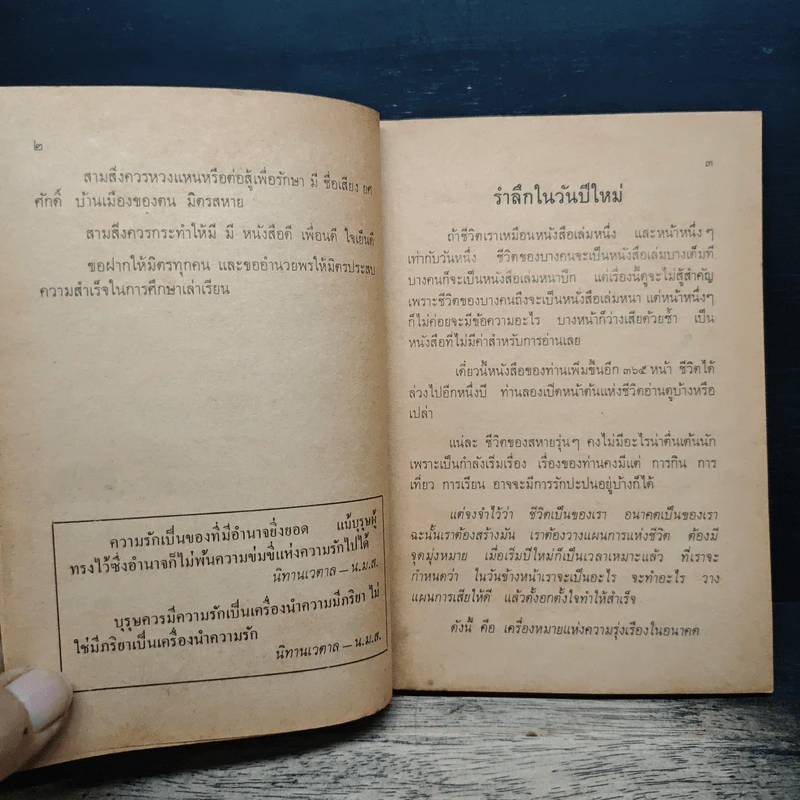 ๒
สามสิ่งควรหวงแหนหรือต่อสู้เพื่อรักษา มี ชื่อเสียง ยศ
ศักดิ์ บ้านเมืองของตน มิตรสหาย
สามสิ่งควรกระทำให้มี มี หนังสือดี เพื่อนดี ใจเย็นดี
ขอฝากให้มิตรทุกคน และขออำนวยพรให้มิตรประสบ
ความสำเร็จในการศึกษาเล่าเรียน
ความรักเป็นของที่มีอำนาจยิ่งยอด แม้บุรุษผู้
ทรงไว้ซึ่งอำนาจก็ไม่พ้นความข่มขี่แห่งความรักไปได้
นิทานเวตาล – น.ม.ส.
บุรุษควรมีความรักเป็นเครื่องนำความมีภริยา ไม่
ใช่มีภริยาเป็นเครื่องนำความรัก
นิทานเวตาล – น.ม.ส.
๓
รำลึกในวันปีใหม่
ถ้าชีวิตเราเหมือนหนังสือเล่มหนึ่ง และหน้าหนึ่งๆ
เท่ากับวันหนึ่ง ชีวิตของบางคนจะเป็นหนังสือเล่มบางเต็มที
บางคนก็จะเป็นหนังสือเล่มหนาปึก แต่เรื่องนี้ดูจะไม่สู้สำคัญ
เพราะชีวิตของบางคนถึงจะเป็นหนังสือเล่มหนา แต่หน้าหนึ่งๆ
ก็ไม่ค่อยจะมีข้อความอะไร บางหน้าก็ว่างเสียด้วยซ้ำ เป็น
หนังสือที่ไม่มีค่าสำหรับการอ่านเลย
เดี๋ยวนี้หนังสือของท่านเพิ่มขึ้นอีก ๓๖๕ หน้า ชีวิตได้
ล่วงไปอีกหนึ่งปี ท่านลองเปิดหน้าต้นแห่งชีวิตอ่านดูบ้างหรือ
เปล่า
แน่ละ ชีวิตของสหายรุ่นๆ คงไม่มีอะไรน่าตื่นเต้นนัก
เพราะเป็นกำลังเริ่มเรื่อง เรื่องของท่านคงมีแต่ การกิน การ
เที่ยว การเรียน อาจจะมีการรักปะปนอยู่บ้างก็ได้
แต่จงจำไว้ว่า ชีวิตเป็นของเรา อนาคตเป็นของเรา
ฉะนั้นเราต้องสร้างมัน เราต้องวางแผนการแห่งชีวิต ต้องมี
จุดมุ่งหมาย เมื่อเริ่มปีใหม่ก็เป็นเวลาเหมาะแล้ว ที่เราจะ
กำหนดว่า ในวันข้างหน้าเราจะเป็นอะไร จะทำอะไร วาง
แผนการเสียให้ดี แล้วตั้งอกตั้งใจทำให้สำเร็จ
ดังนี้ คือ เครื่องหมายแห่งความรุ่งเรืองในอนาคต